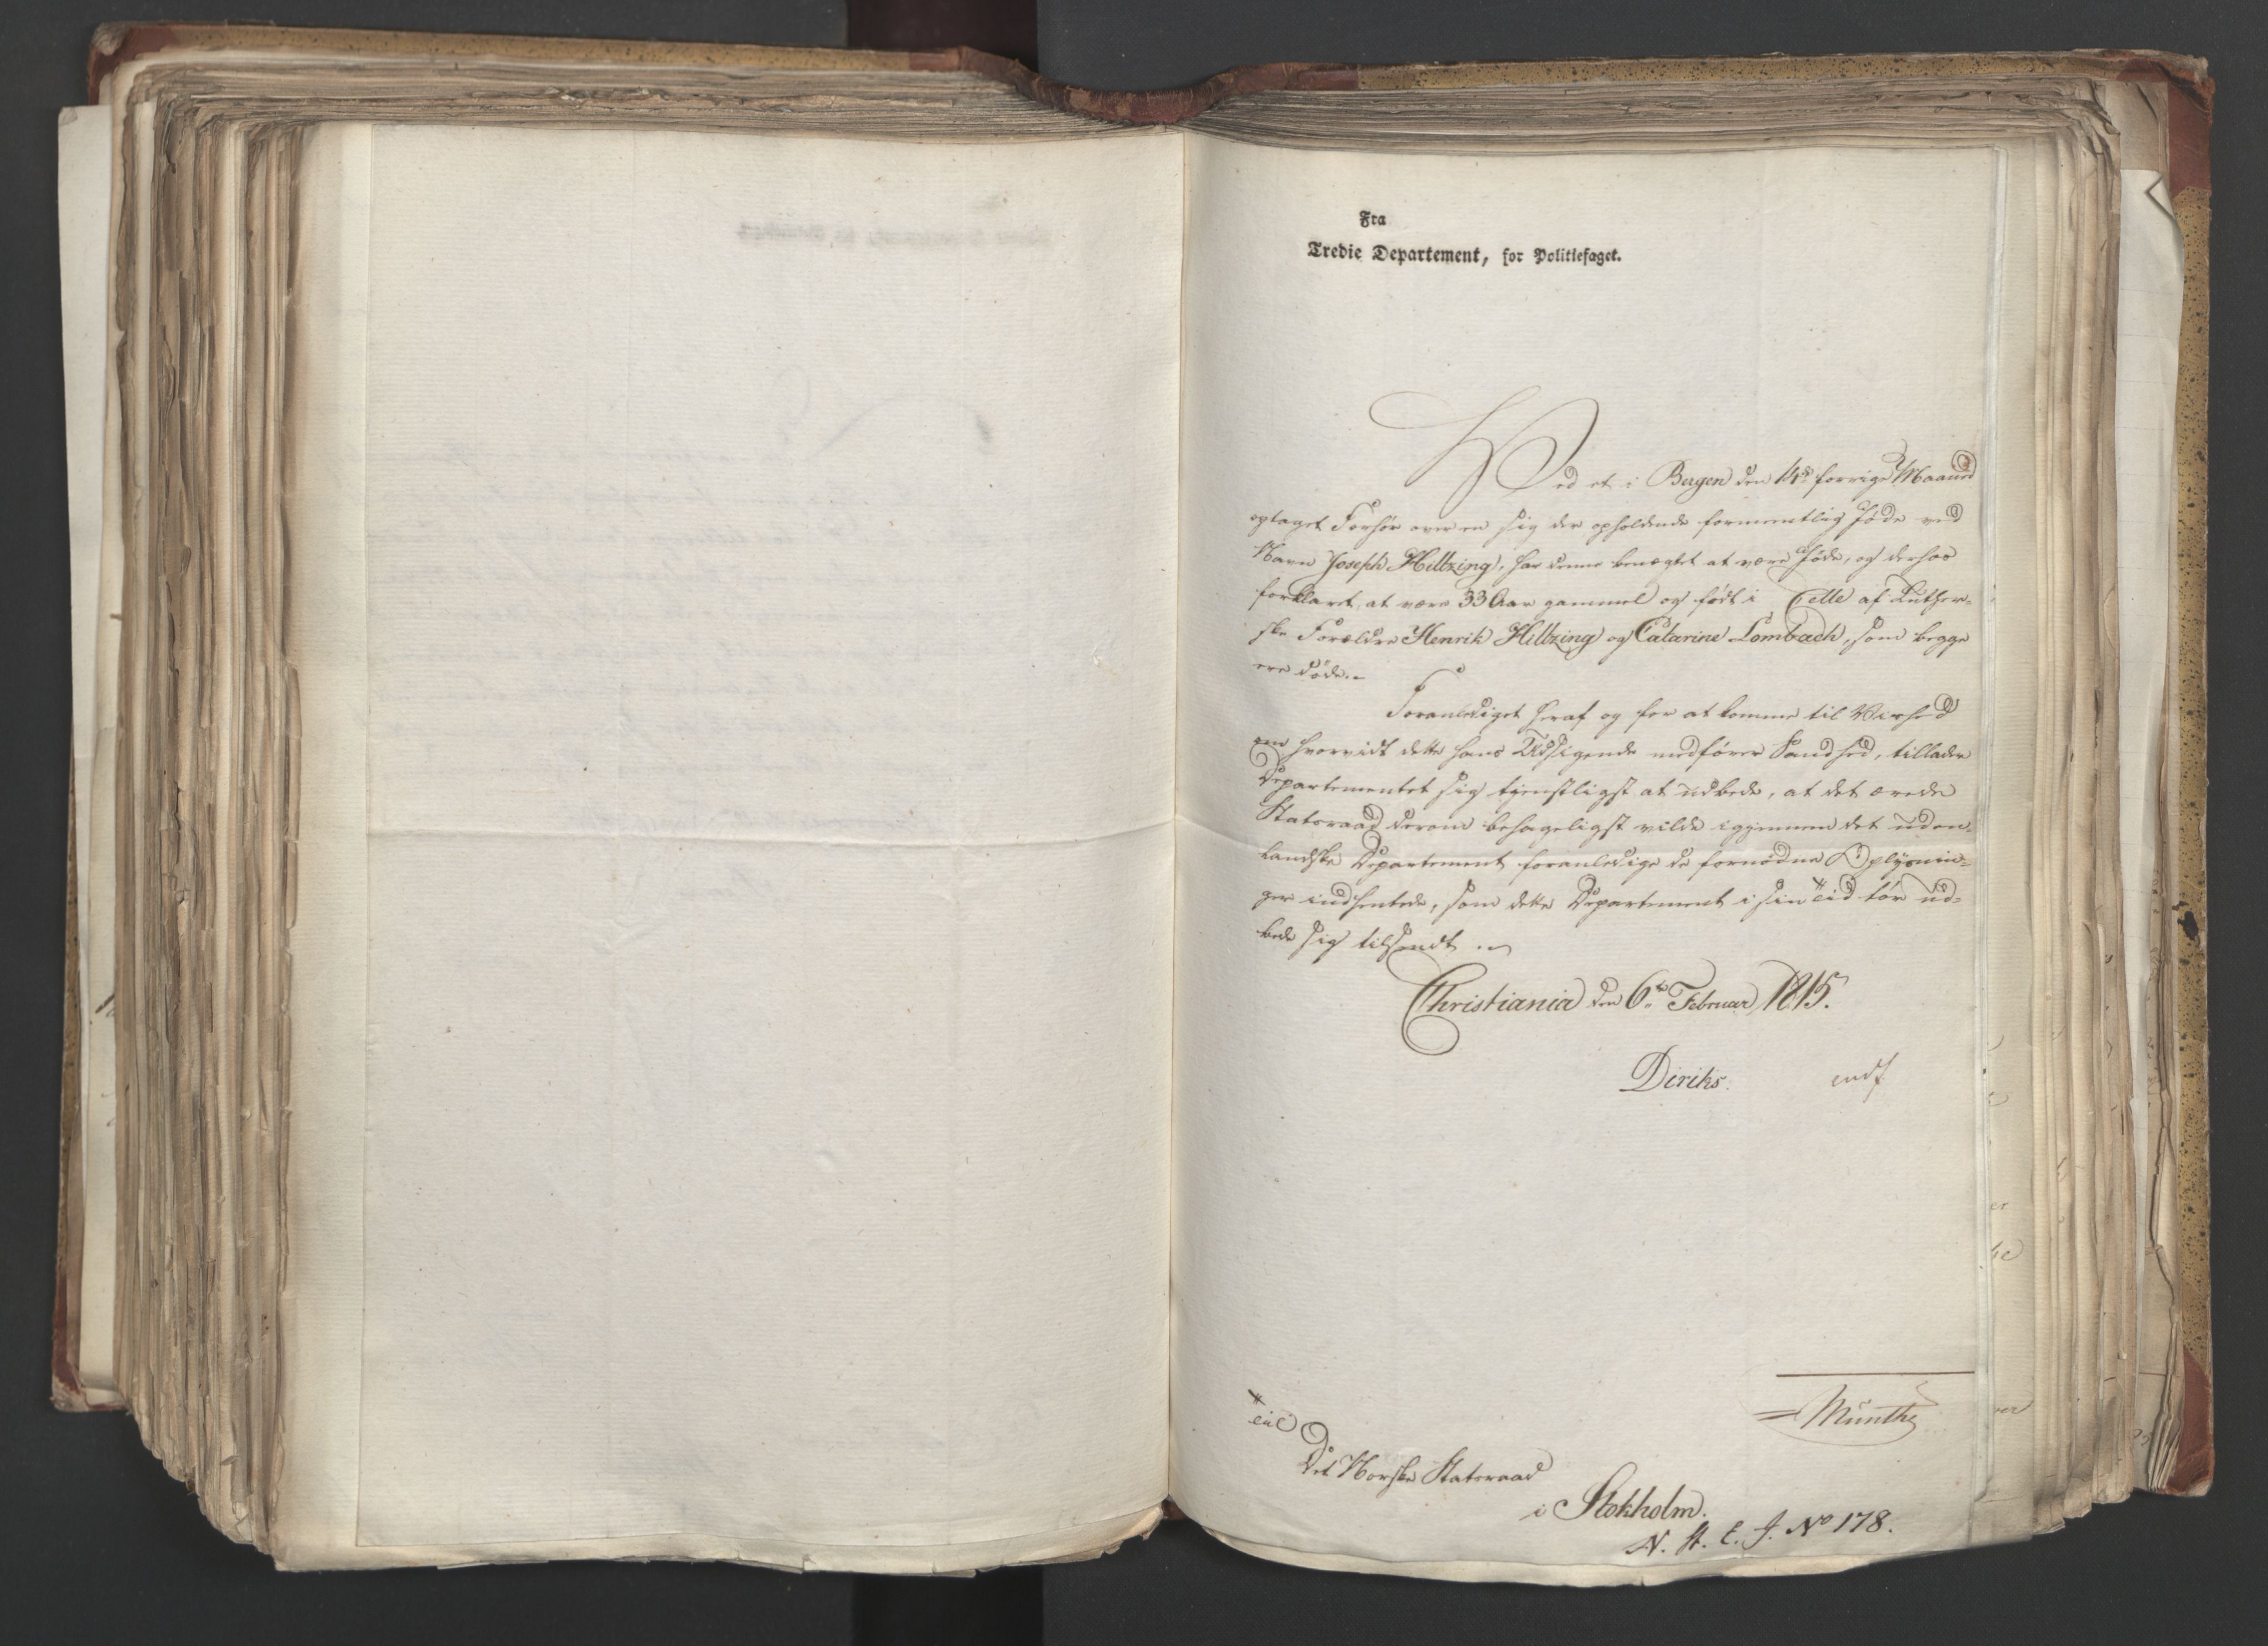 Fra
Tredie Departement, for Politiefaget.
Ved et i Bergen den 14de forrige Maaned
optaget Forhør over en sig der opholdende formentlig Jøde ved
Navn Joseph Hiltzing, har denne benægtet at være Jøde, og derhos
forklaret, at være 33 Aar gammel og født i Celle af Luther-
ske Forældre Henrik Hiltzing og Catarine Lombach, som begge
ere døde.-
Foranlediget heraf og for at komme til Vished
om hvorvidt dette hans Udsigende medfører Sandhed, tillader
Departementet sig tjenstligst at udbede, at det ærede
Statsraad derom behageligst vilde igjennem det uden-
landske Departement foranledige de fornødne Oplysnin-
ger indhentede, som dette Departement i sin Tid tør ud-
bede sig tilsendt.-
Christiania den 6te Februar 1815.
Diriks.
Munthe
Til
Det Norske Statsraad
i Stokholm.
N. St. E. J. No 178.